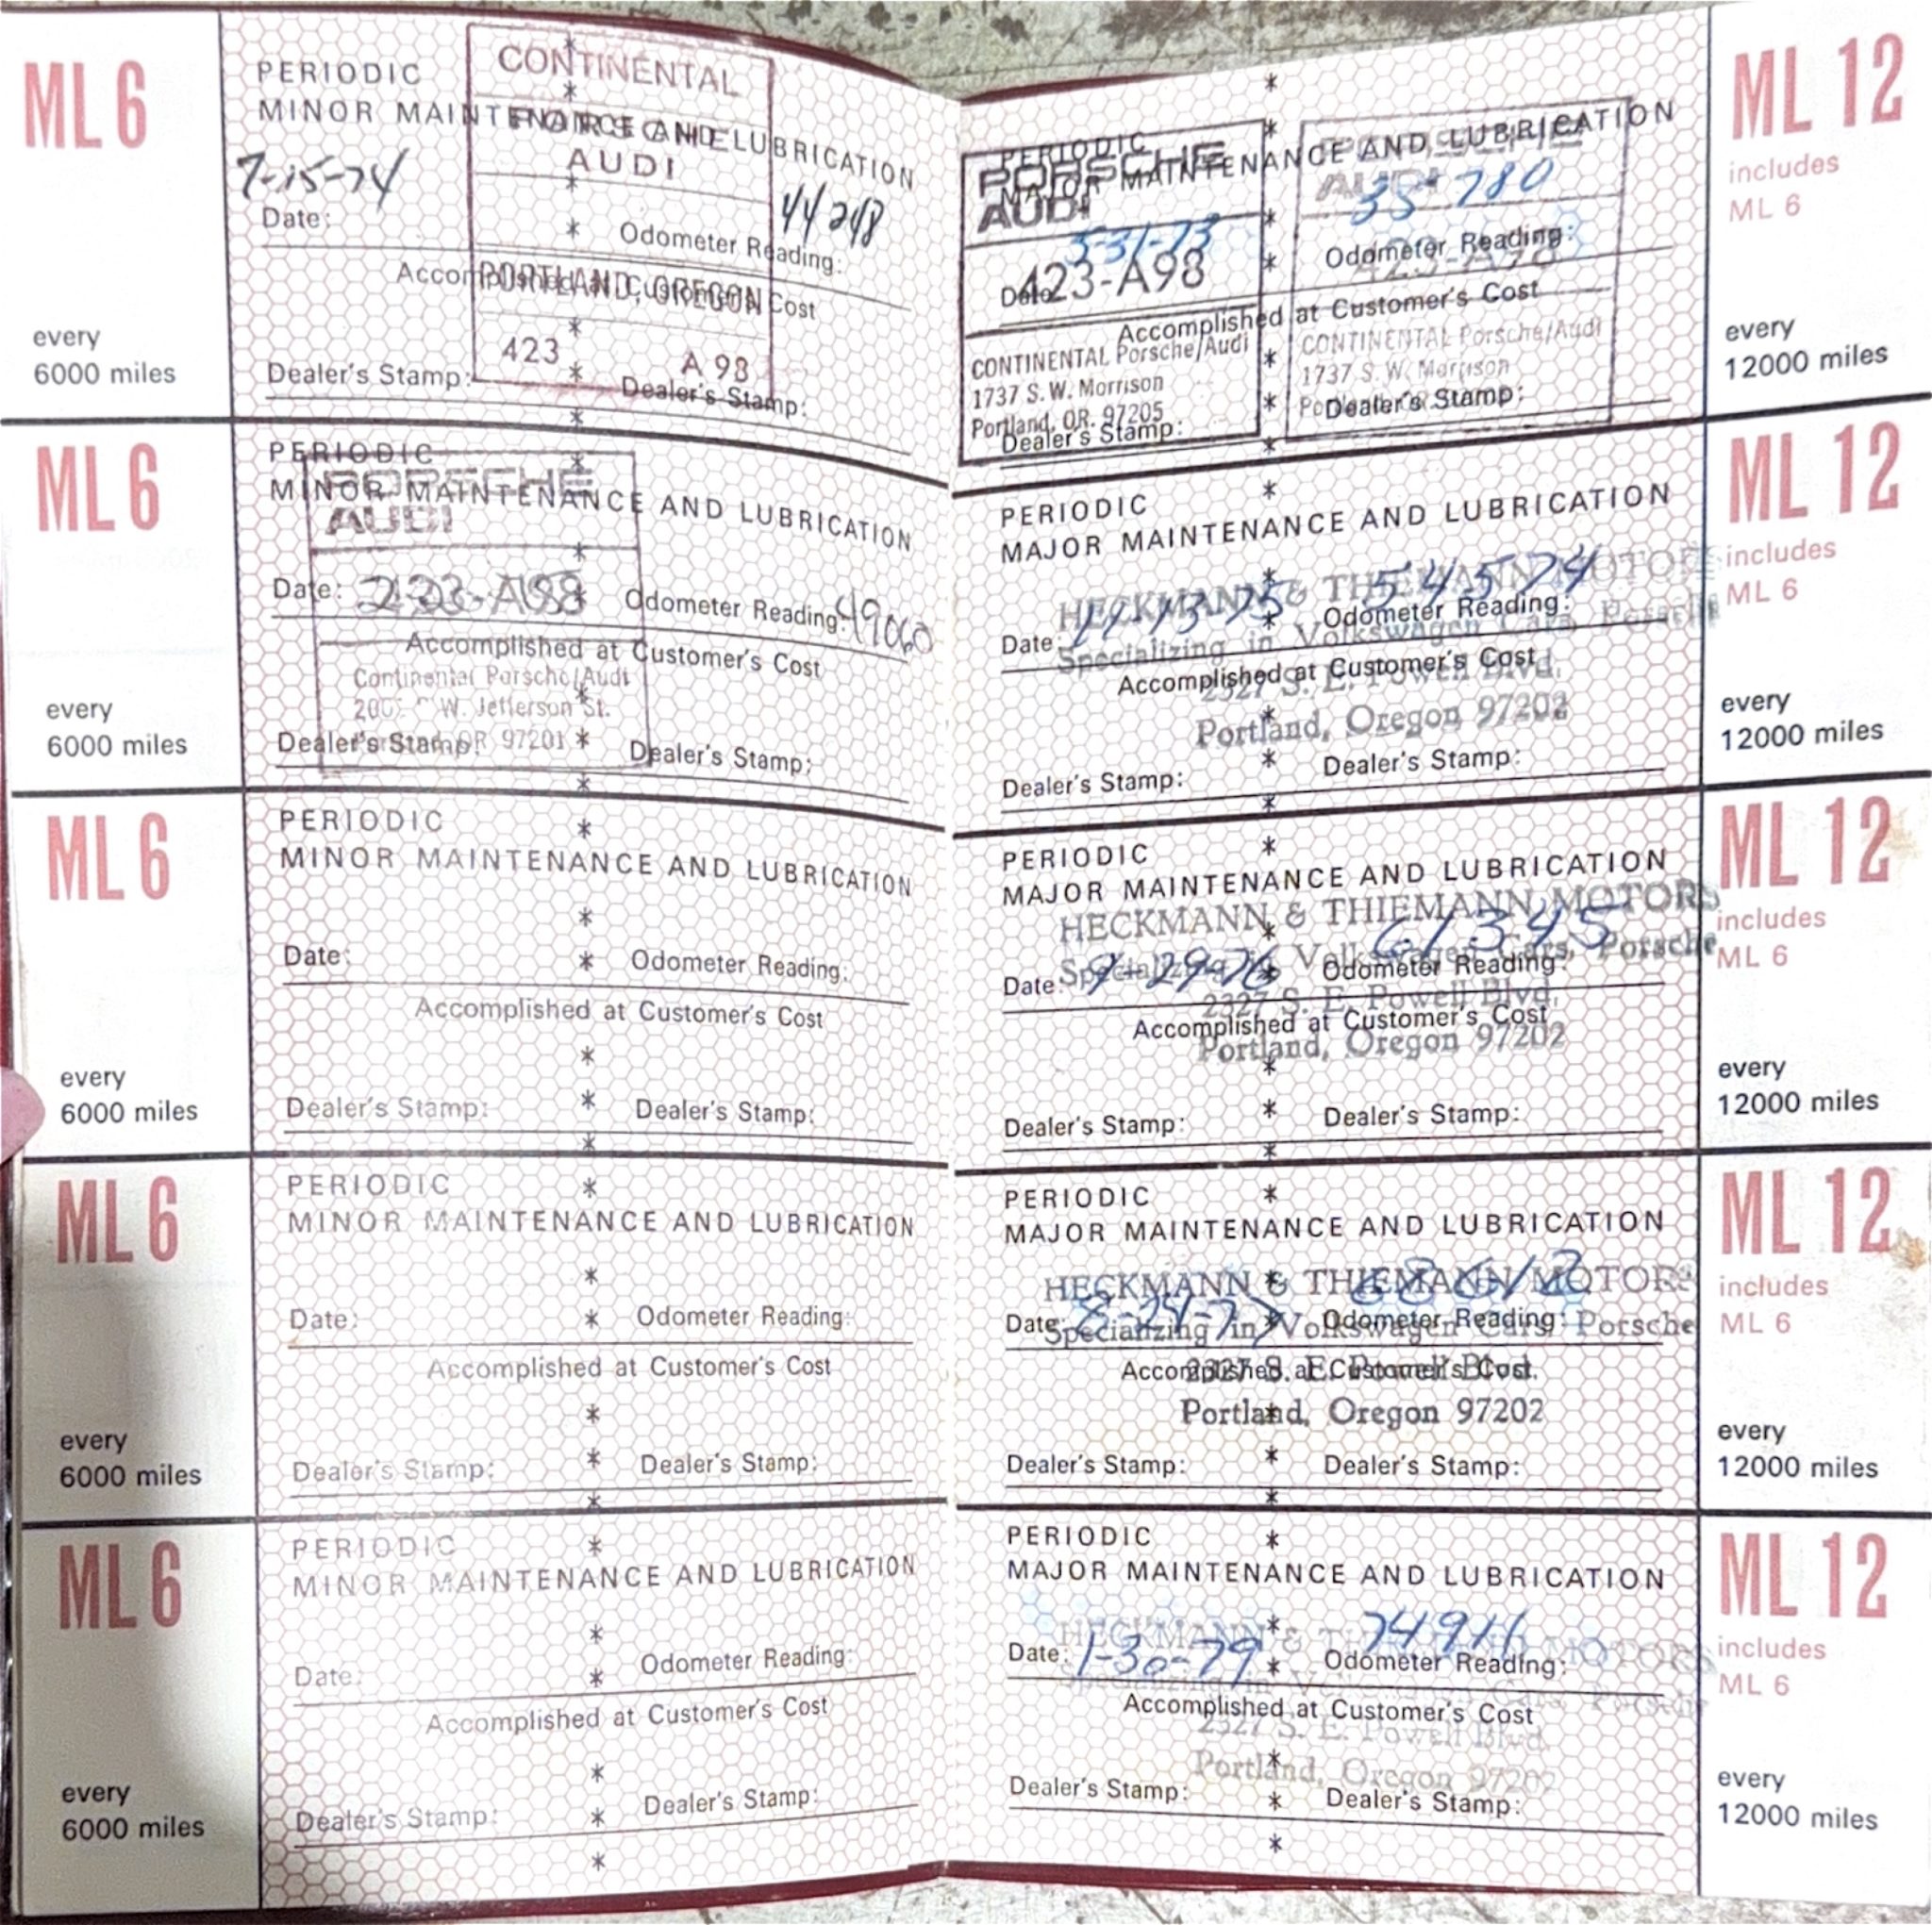 ML 6
PERIODIC
MINOR MAINTENANCE AND LUBRICATION
CONTINENTAL
PORSCHE
AUDI
7-15-74
44248
Date:
Odometer Reading:
Accomplished at Customer's Cost
PORTLAND, OREGON
423 A 98
every
6000 miles
Dealer's Stamp:
Dealer's Stamp:
ML 6
PERIODIC
MINOR MAINTENANCE AND LUBRICATION
PORSCHE
AUDI
Date:
Odometer Reading: 49060
Accomplished at Customer's Cost
Continental Porsche/Audi
W. Jefferson St.
OR 97201
every
6000 miles
Dealer's Stamp:
Dealer's Stamp:
ML 6
PERIODIC
MINOR MAINTENANCE AND LUBRICATION
Date:
Odometer Reading:
Accomplished at Customer's Cost
every
6000 miles
Dealer's Stamp:
Dealer's Stamp:
ML 6
PERIODIC
MINOR MAINTENANCE AND LUBRICATION
Date:
Odometer Reading:
Accomplished at Customer's Cost
every
6000 miles
Dealer's Stamp:
Dealer's Stamp:
ML 6
PERIODIC
MINOR MAINTENANCE AND LUBRICATION
Date:
Odometer Reading:
Accomplished at Customer's Cost
every
6000 miles
Dealer's Stamp:
Dealer's Stamp:
ML 12
includes
ML 6
PERIODIC
MAJOR MAINTENANCE AND LUBRICATION
PORSCHE
AUDI
PORSCHE
AUDI
5-31-73
35780
423-A98
423-A98
Date:
Odometer Reading:
Accomplished at Customer's Cost
CONTINENTAL Porsche/Audi
1737 S.W. Morrison
Portland, OR. 97205
CONTINENTAL Porsche/Audi
1737 S.W. Morrison
Dealer's Stamp:
Dealer's Stamp:
every
12000 miles
ML 12
includes
ML 6
PERIODIC
MAJOR MAINTENANCE AND LUBRICATION
HECKMANN & THIEMANN MOTORS
54574
Date: 11-13-75
Odometer Reading:
Specializing in Volkswagen Cars, Porsche
Accomplished at Customer's Cost
2327 S. E. Powell Blvd.
Portland, Oregon 97202
Dealer's Stamp:
Dealer's Stamp:
every
12000 miles
ML 12
includes
ML 6
PERIODIC
MAJOR MAINTENANCE AND LUBRICATION
HECKMANN & THIEMANN MOTORS
61345
Date: 9-29-76
Odometer Reading:
Specializing in Volkswagen Cars, Porsche
2327 S. E. Powell Blvd.
Accomplished at Customer's Cost
Portland, Oregon 97202
Dealer's Stamp:
Dealer's Stamp:
every
12000 miles
ML 12
includes
ML 6
PERIODIC
MAJOR MAINTENANCE AND LUBRICATION
HECKMANN & THIEMANN MOTORS
68612
Date: 8-24-77
Odometer Reading:
Specializing in Volkswagen Cars, Porsche
Accomplished at Customer's Cost
2327 S. E. Powell Blvd.
Portland, Oregon 97202
Dealer's Stamp:
Dealer's Stamp:
every
12000 miles
ML 12
includes
ML 6
PERIODIC
MAJOR MAINTENANCE AND LUBRICATION
HECKMANN & THIEMANN MOTORS
74916
Date: 1-30-79
Odometer Reading:
Specializing in Volkswagen Cars, Porsche
Accomplished at Customer's Cost
2327 S. E. Powell Blvd.
Portland, Oregon 97202
Dealer's Stamp:
Dealer's Stamp:
every
12000 miles